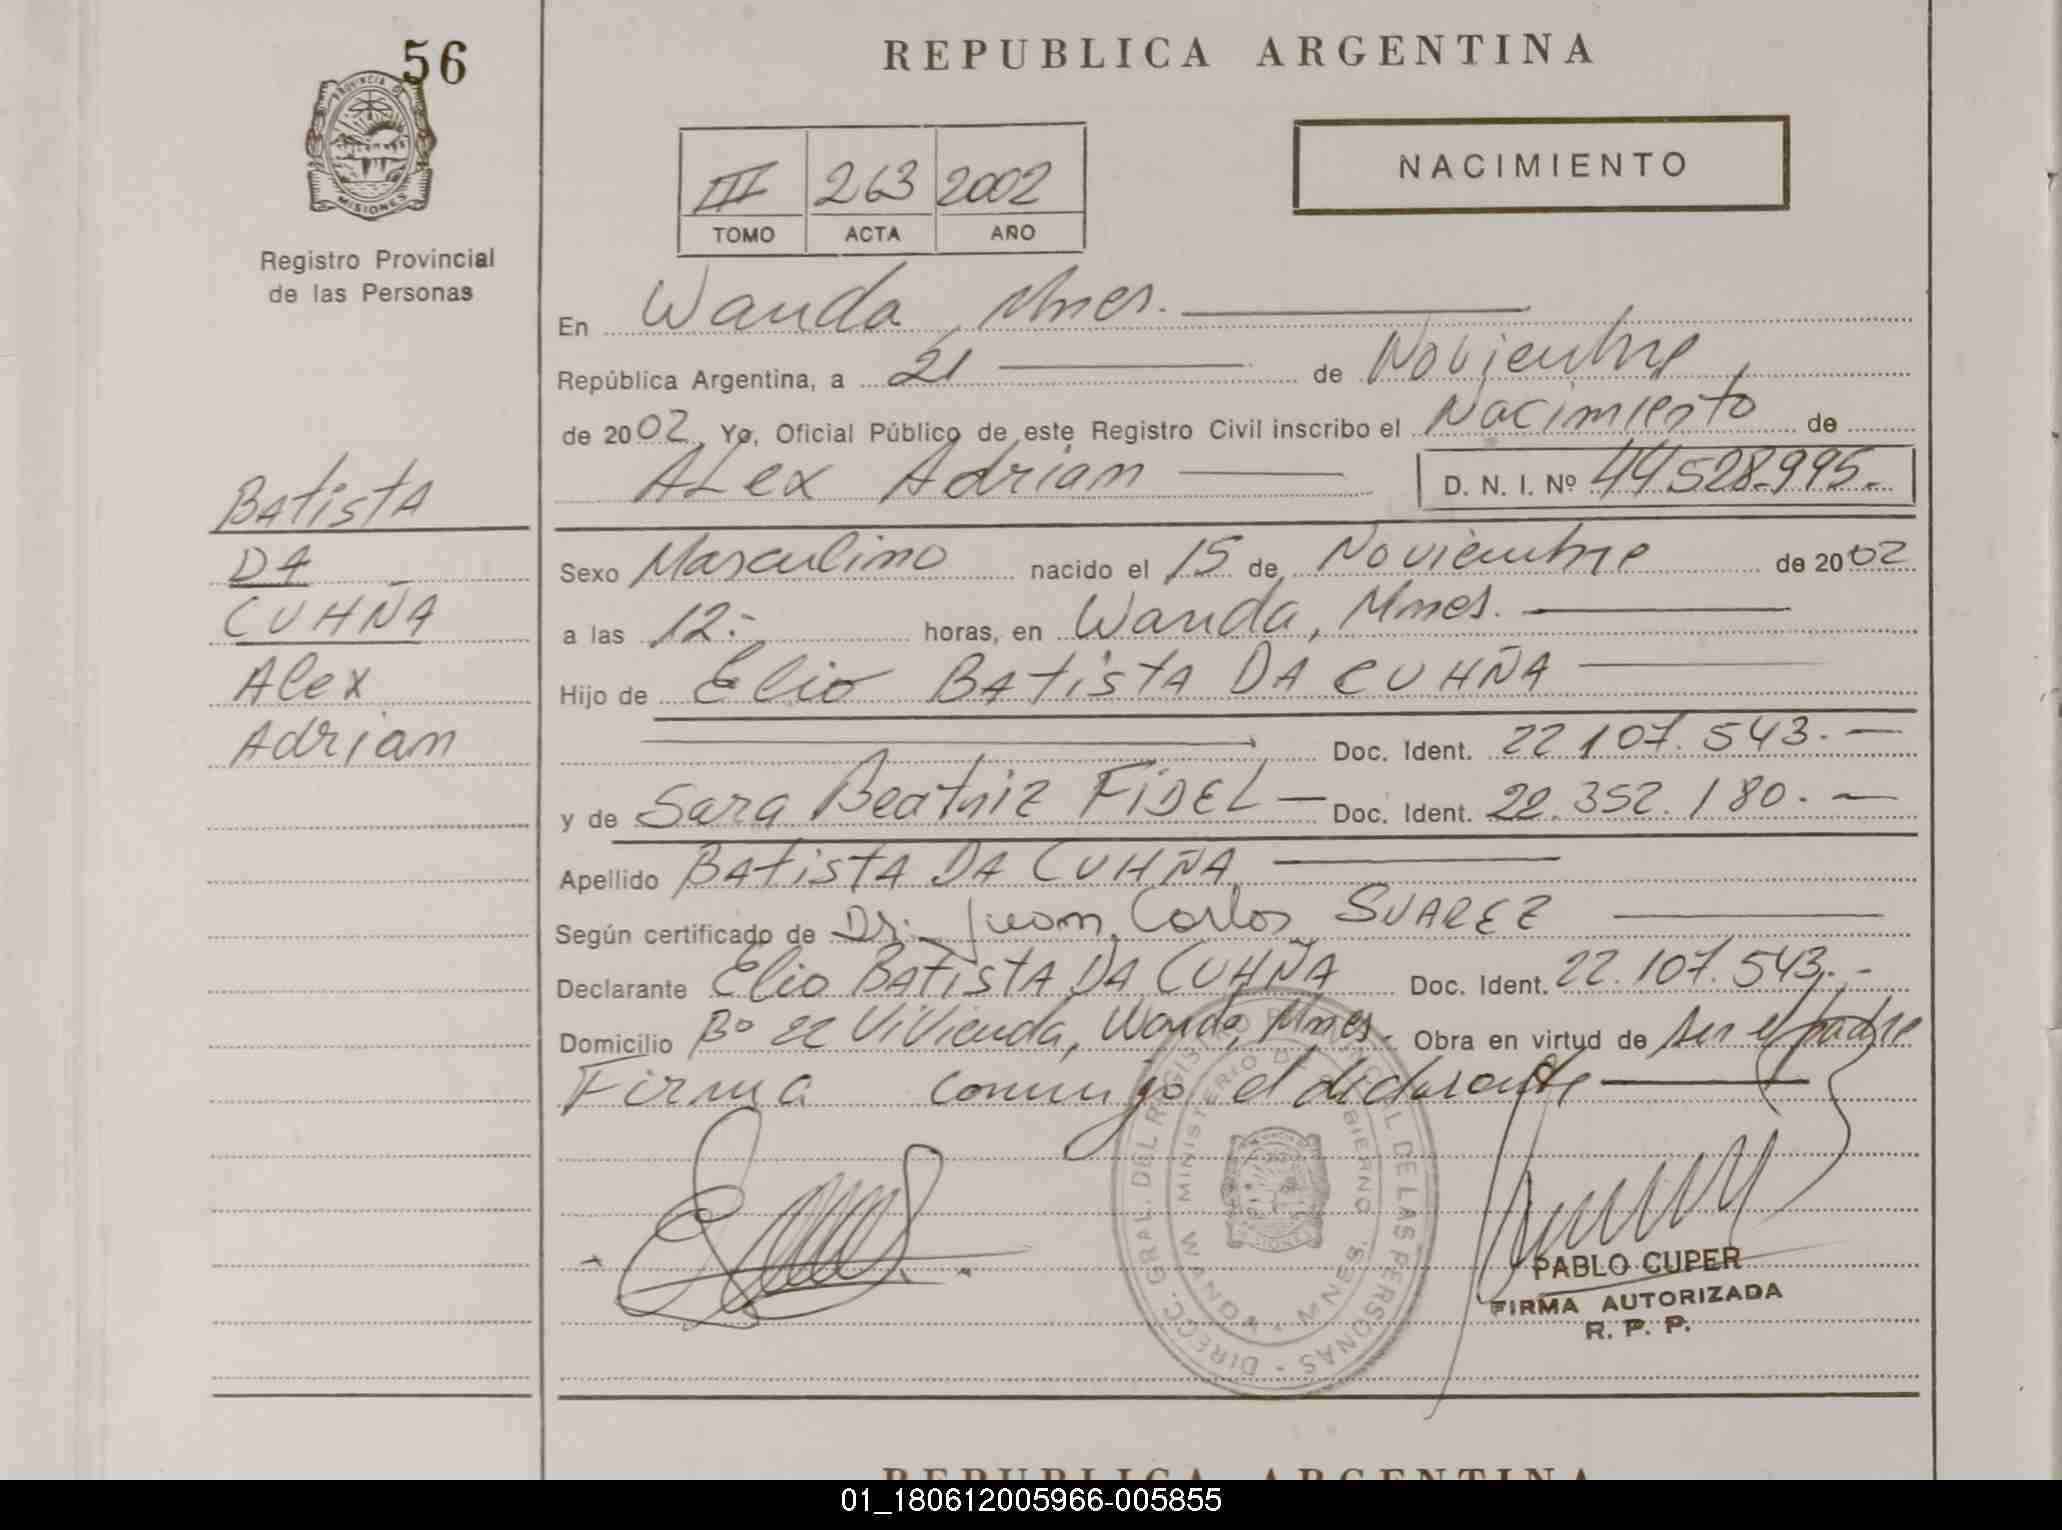 56
PROVINCIA D
MISIONES
Registro Provincial
de las Personas
REPUBLICA ARGENTINA
III 263 2002
TOMO ACTA AÑO
NACIMIENTO
En Wanda, Mnes.
República Argentina, a 21 de Noviembre
de 2002, Yo, Oficial Público de este Registro Civil inscribo el Nacimiento de
ALex Adrian D. N. I. Nº 44.528.995.-
Batista
DA
CUHÑA
Alex
Adrian
Sexo Masculino nacido el 15 de Noviembre de 2002
a las 12.- horas, en Wanda, Mnes.
Hijo de Elio BAtistA DA CUHÑA
Doc. Ident. 22.107.543.-
y de Sara Beatriz FIDEL - Doc. Ident. 22.352.180.-
Apellido BAtistA DA CUHÑA
Según certificado de Dr. Juan Carlos SUAREZ
Declarante Elio BAtistA DA CUHÑA Doc. Ident. 22.107.543.-
Domicilio Bº 22 ViVienda, Wanda, Mnes. Obra en virtud de ser el padre
Firma conmigo el declarante
DIRECC. GRAL. DEL REGISTRO PROVINCIAL DE LAS PERSONAS -
MINISTERIO DE GOBIERNO
WANDA - MNES.
PABLO CUPER
FIRMA AUTORIZADA
R. P. P.
REPUBLICA ARGENTINA
01_180612005966-005855